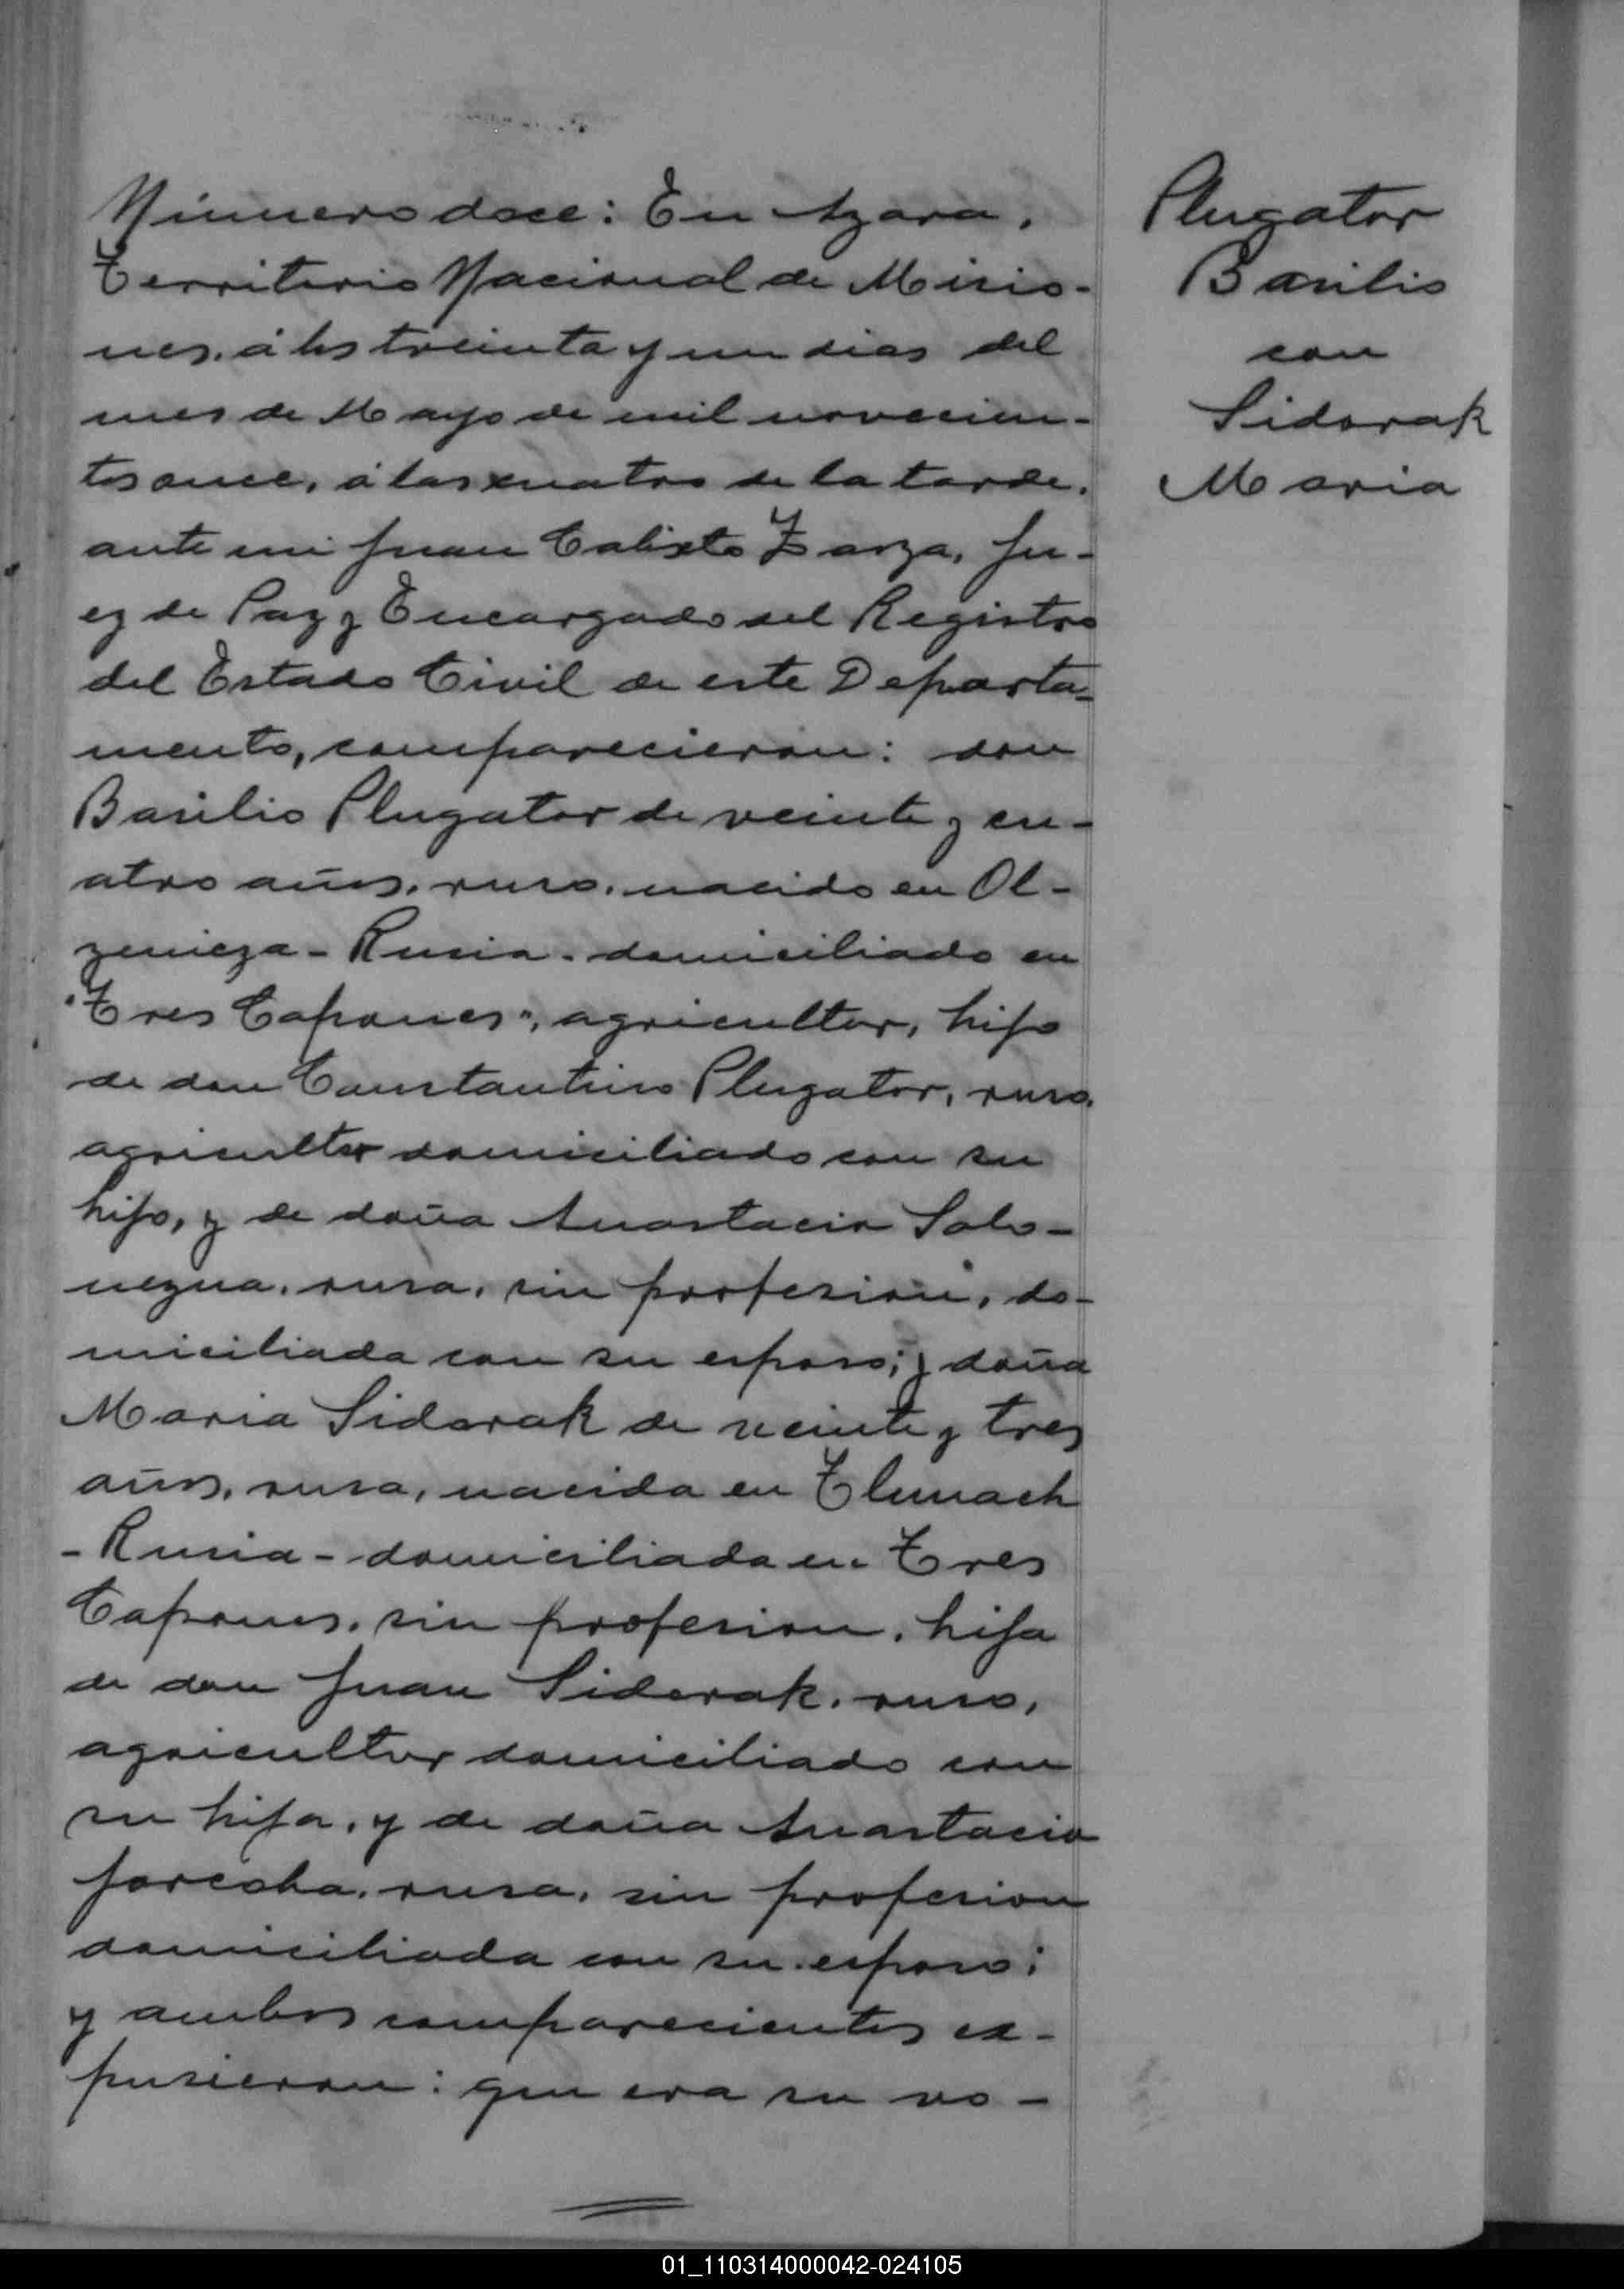 Número doce: En Azara,
Territorio Nacional de Misio-
nes, á los treinta y un dias del
mes de Mayo de mil novecien-
tos once, á las cuatro de la tarde,
ante mi Juan Calixto Zarza, Ju-
ez de Paz y Encargado del Registro
del Estado Civil de este Departa-
mento, comparecieron: don
Basilio Plugator de veinte y cu-
atro años, ruso, nacido en Ol-
zenieza - Rusia - domiciliado en
"Tres Capones", agricultor, hijo
de don Constantino Plugator, ruso,
agricultor domiciliado con su
hijo, y de doña Anastacia Solo-
nezna, rusa, sin profesión, do-
miciliada con su esposo; y doña
Maria Sidorak de veinte y tres
años, rusa, nacida en Tlumach
- Rusia - domiciliada en Tres
Capones, sin profesion, hija
de don Juan Siderak, ruso,
agricultor domiciliado con
su hija, y de doña Anastacia
Jorcoha, rusa, sin profesion
domiciliada con su esposo;
y ambos comparecientes ex-
pusieron: que era su vo-
Plugator
Basilio
con
Sidorak
Maria
01_110314000042-024105